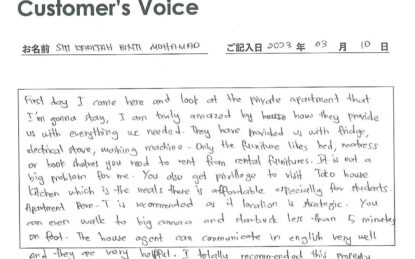 Customer's Voice
お名前 SITI KHADIJAH BINTI MOHAMAD ご記入日 2023 年 03 月 10 日
First day I came here and look at the private apartment that
I'm gonna stay, I am truly amazed by house how they provide
us with everything we needed. They have provided us with fridge,
electrical stove, washing machine. Only the furniture likes bed, matress
or book shelves you need to rent from rental furnitures. It is not a
big problem for me. You also get privillege to visit Toko house
kitchen which is the meals there is affordable especially for students.
Apartment Pere-T is recommended as it location is strategic. You
can even walk to big camera and starbuck less than 5 minutes
on foot. The house agent can communicate in english very well
and they are very helpful. I totally recommended this property